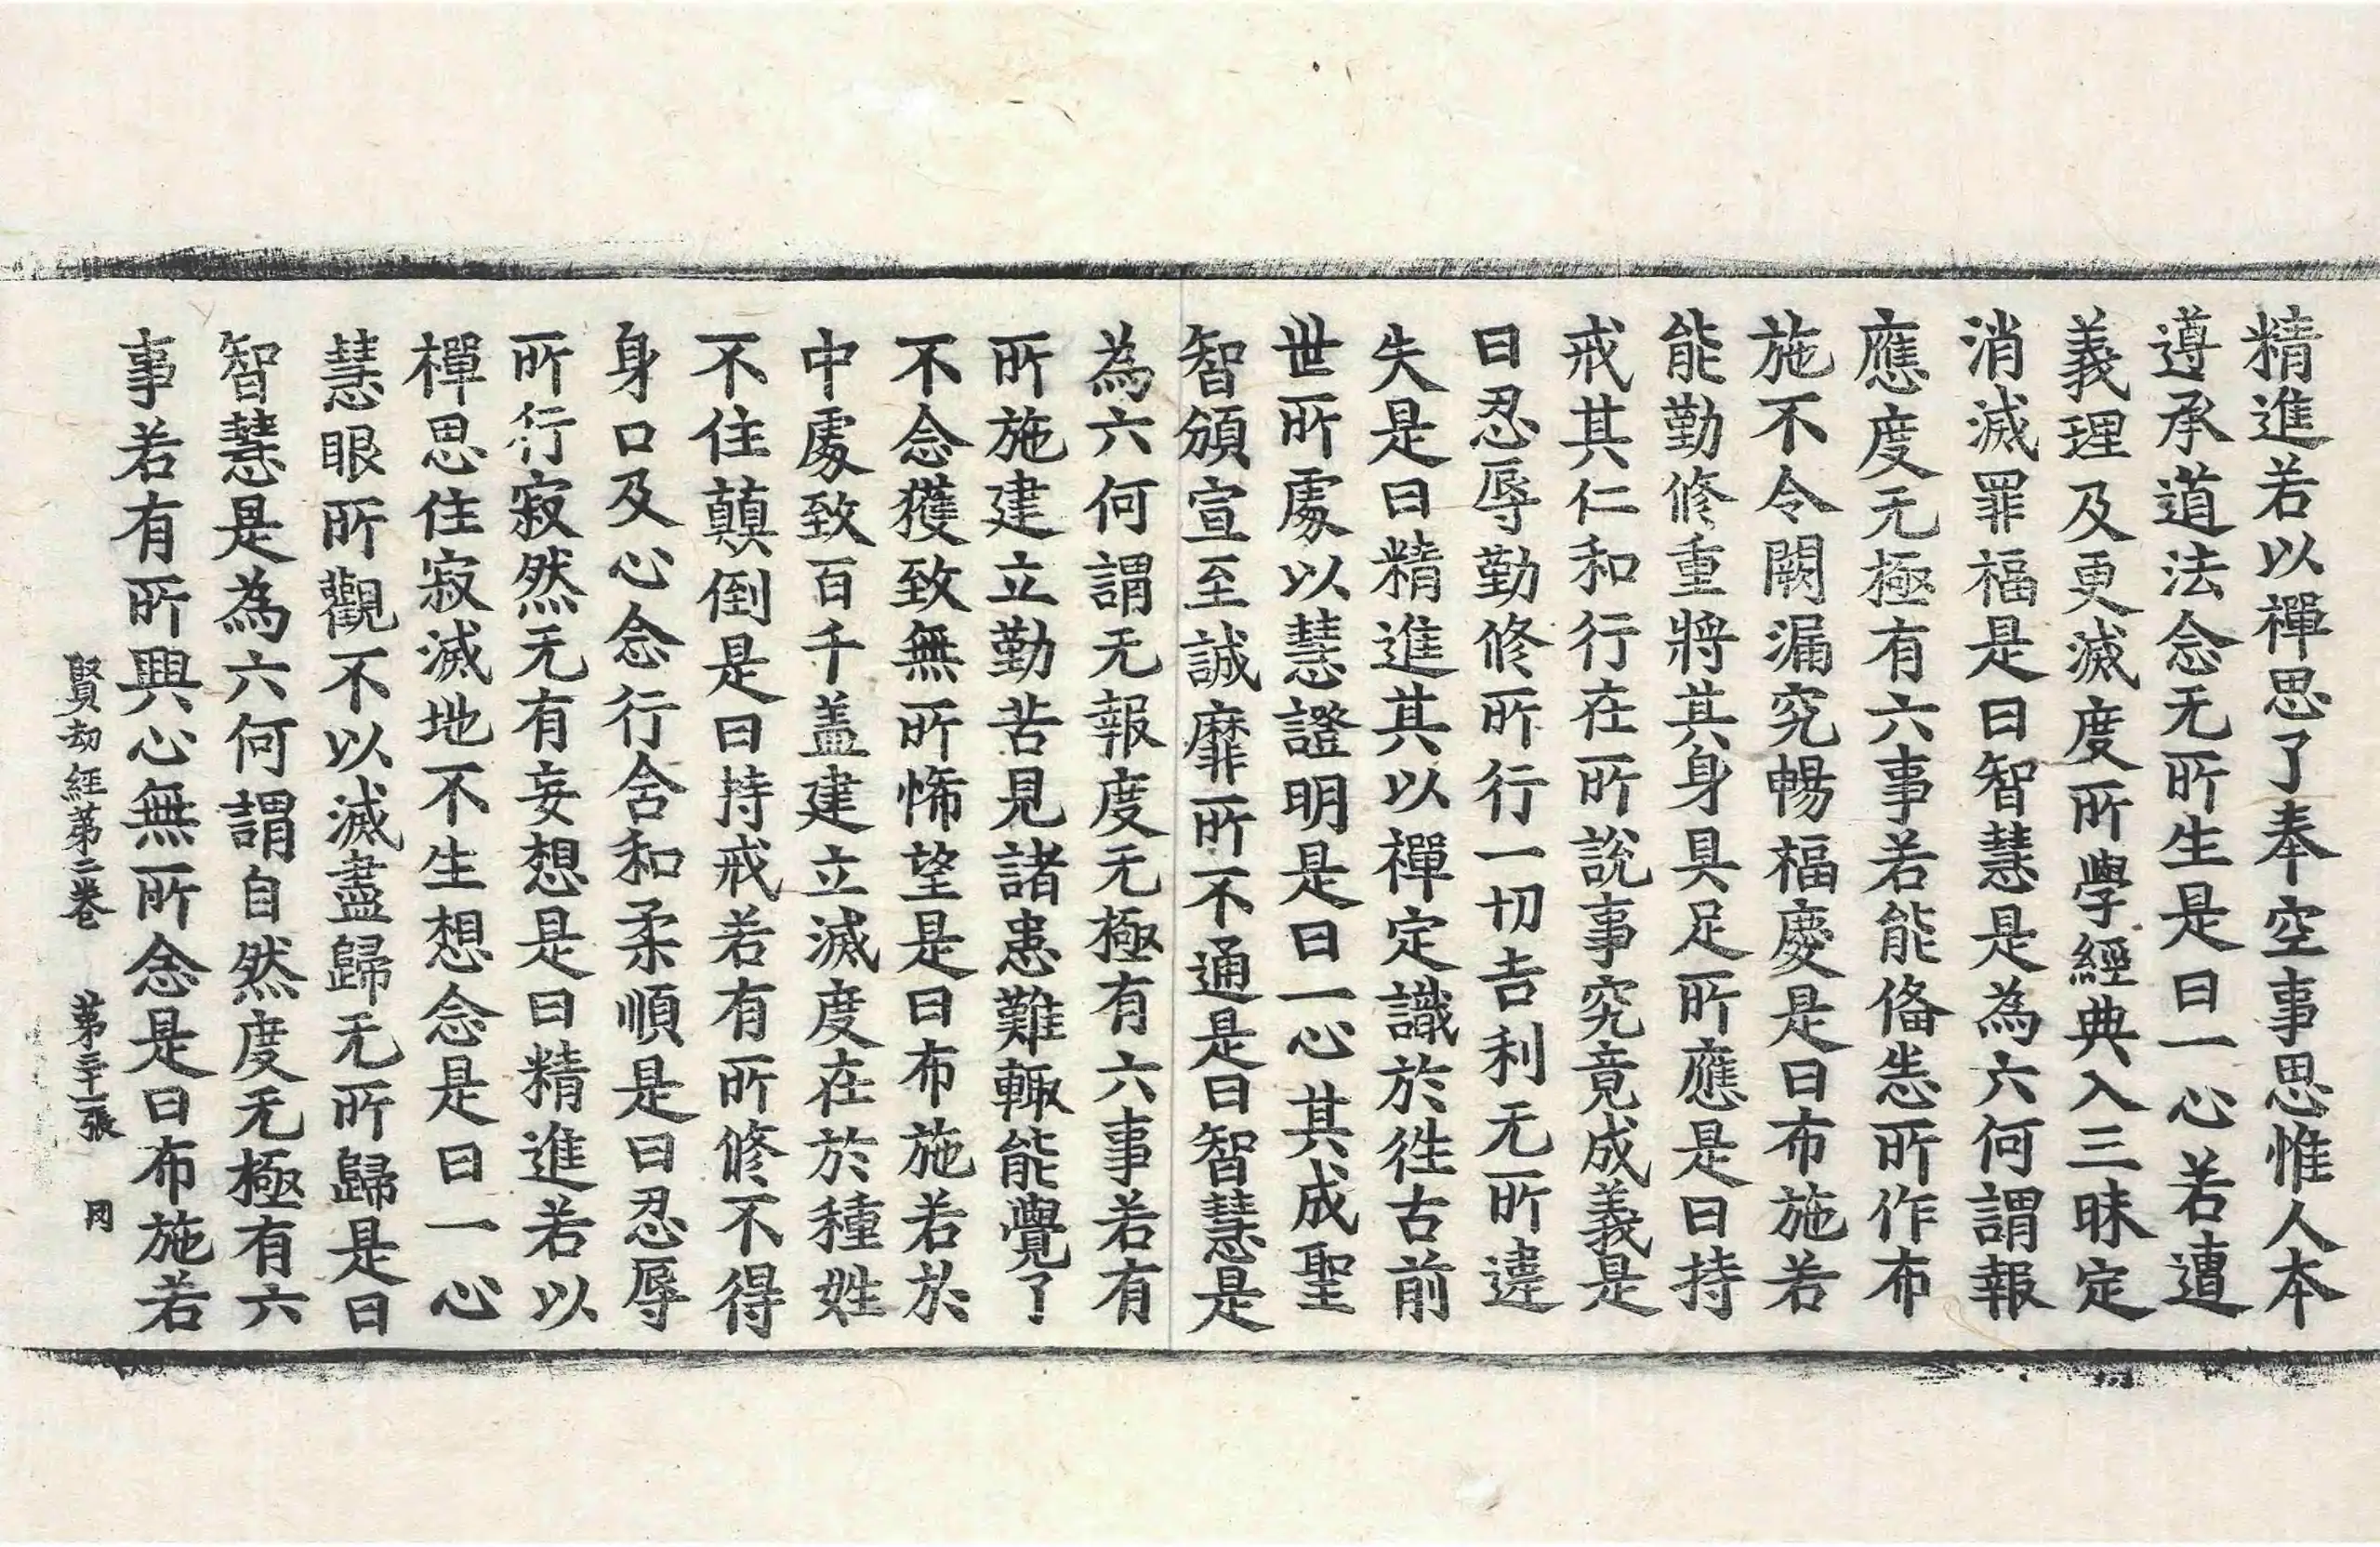 精進若以禪思了奉空事思惟人本
遵承道法念无所生是曰一心若遭
義理及更滅度所學經典入三昧定
消滅罪福是曰智慧是為六何謂報
應度无極有六事若能俻恙所作布
施不令闕漏究暢福慶是曰布施若
能勤修重將其身具足所應是曰持
戒其仁和行在所說事究竟成義是
曰忍辱勤修所行一切吉利无所違
失是曰精進其以禪定識於徃古前
世所處以慧證明是曰一心其成聖
智頒宣至誠靡所不通是曰智慧是
為六何謂无報度无極有六事若有
所施建立勤苦見諸患難輙能覺了
不念獲致無所悕望是曰布施若於
中處致百千盖建立滅度在於種姓
不住顛倒是曰持戒若有所修不得
身口及心念行舍和柔順是曰忍辱
所行寂然无有妄想是曰精進若以
禪思住寂滅地不生想念是曰一心
慧眼所觀不以滅盡歸无所歸是曰
智慧是為六何謂自然度无極有六
事若有所興心無所念是曰布施若
賢劫經第二卷 第三十一張 罔